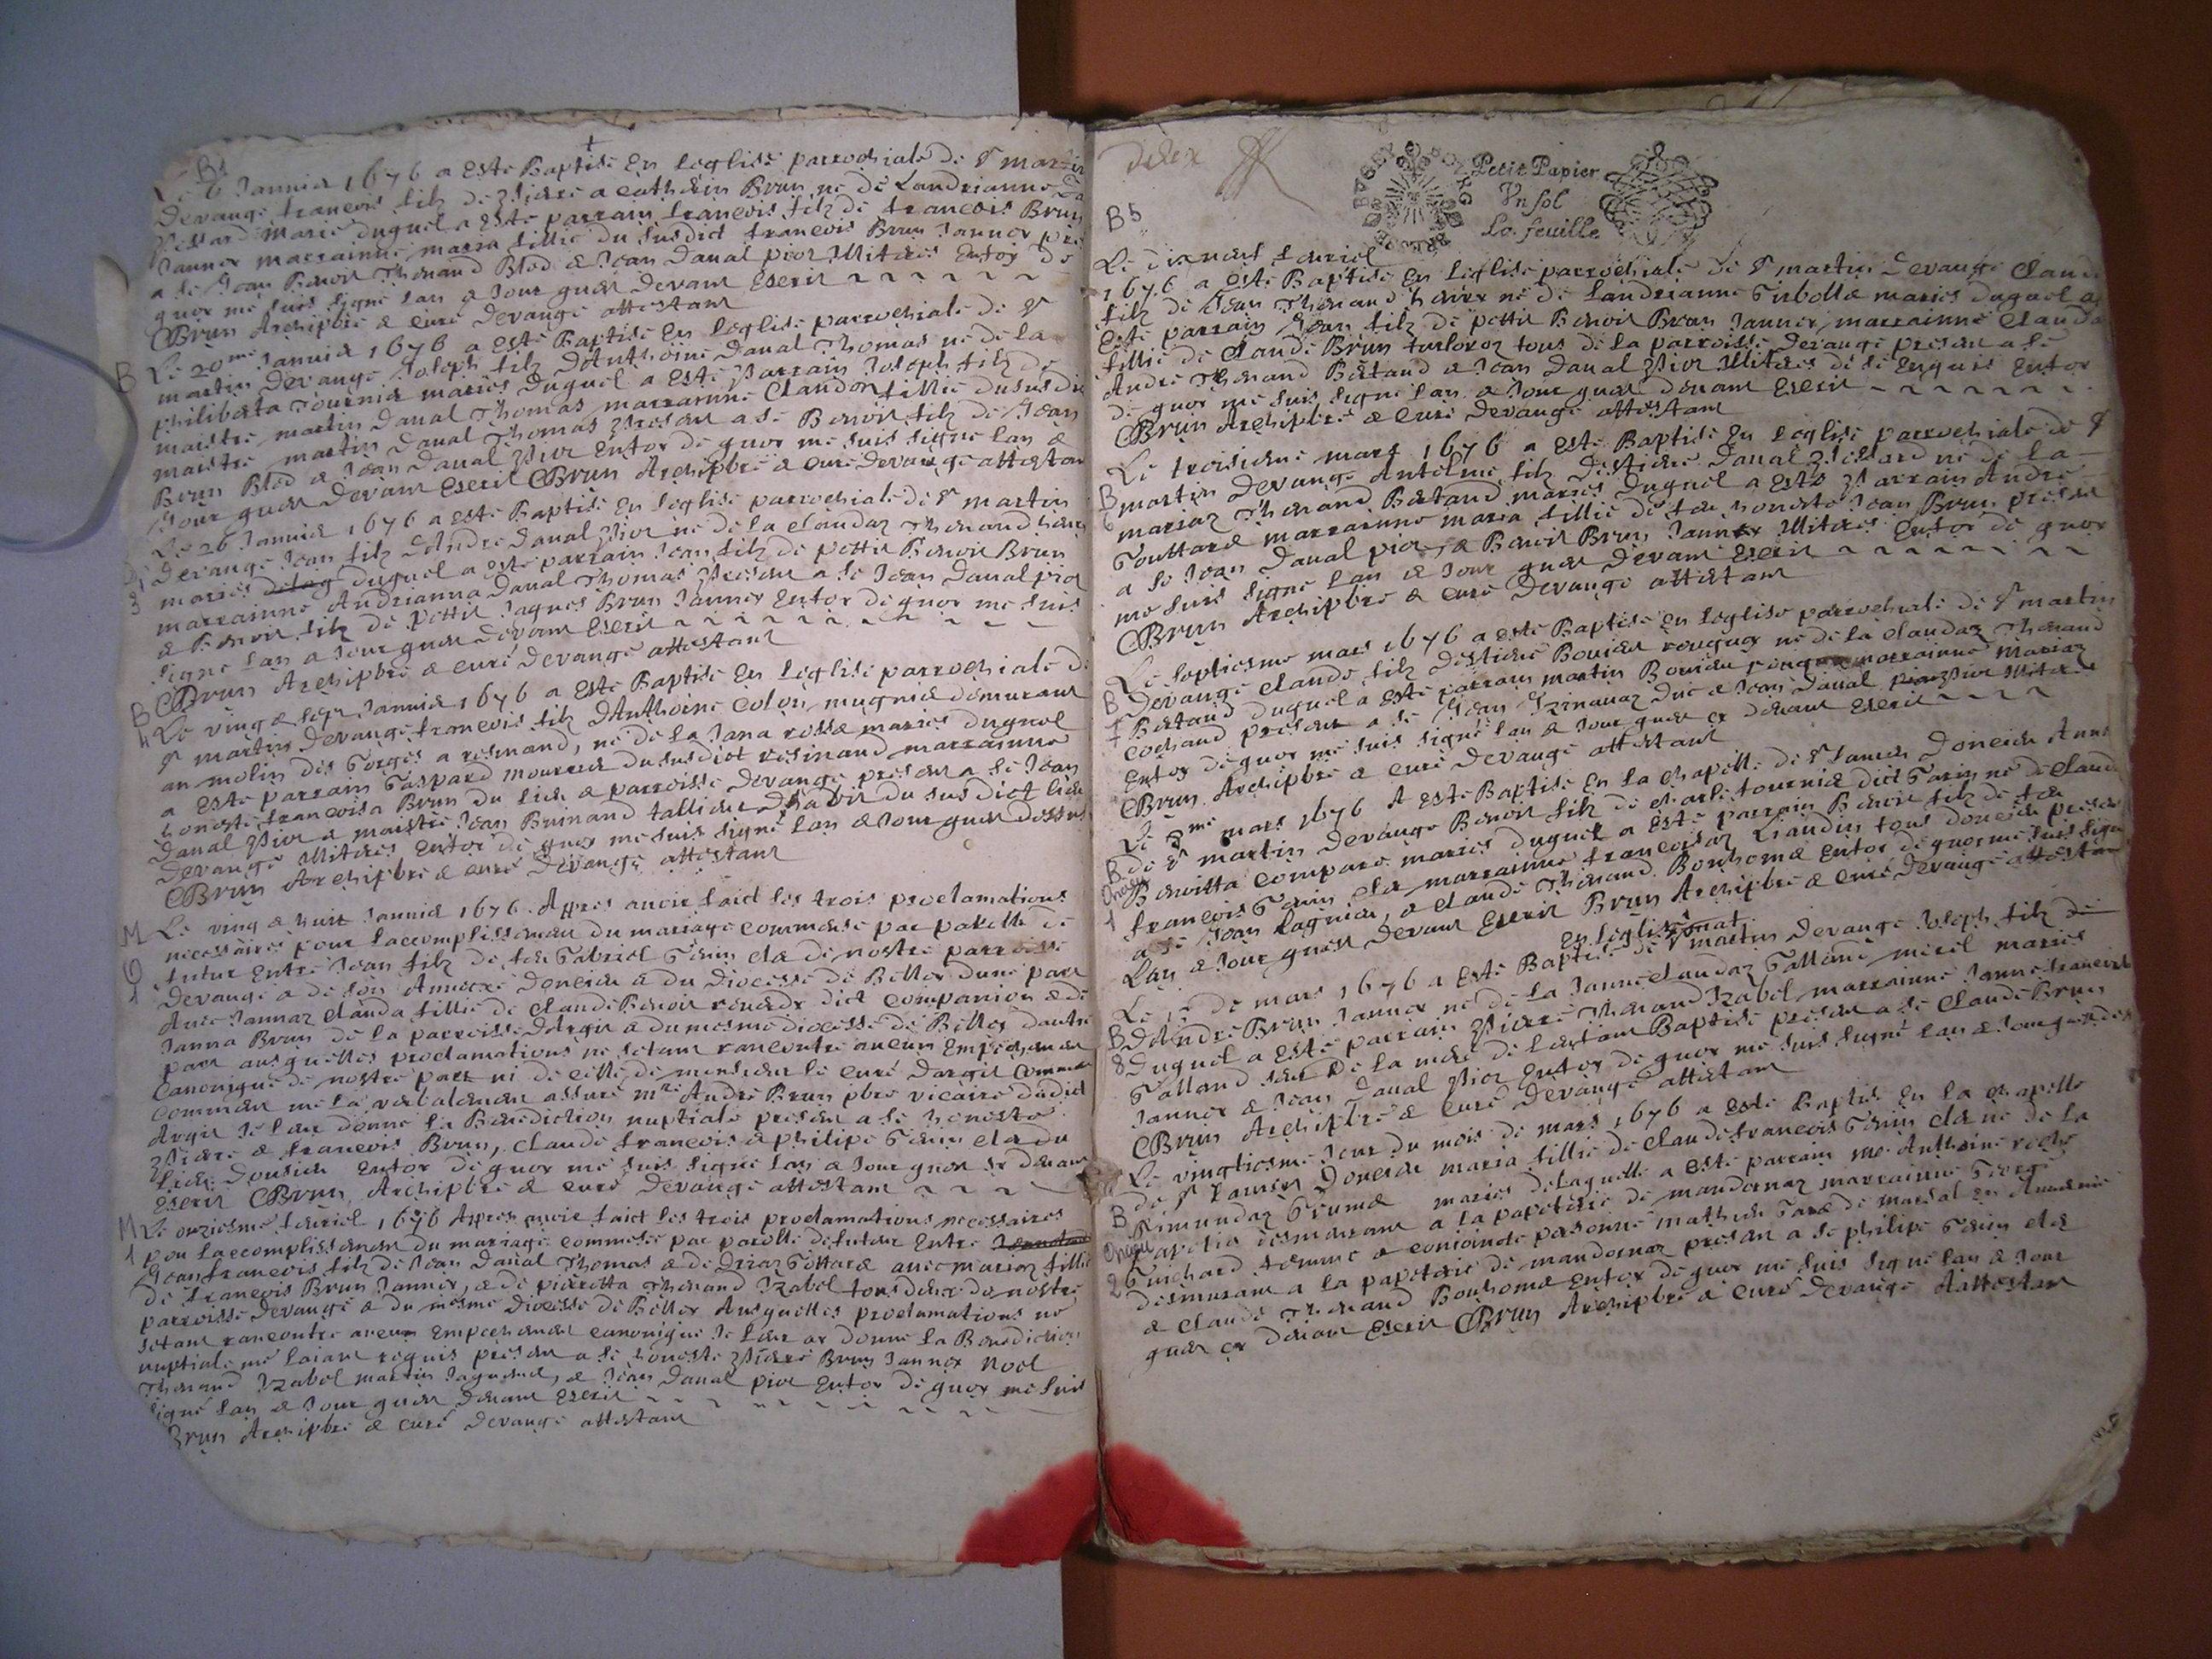 B 1
Le 6 Jannier 1676 a Este Baptisé En leglise parrochiale de St martin
devange francois filz de Pierre a cathelin Brun ne de Landrianne Da
Pessard mariés duquel a Este parrain francois filz de francois Brun
Janner marrainne maria fillie du susdict francois Brun Janner pre
a Jean Benoit Thenand Blod & Jean Daual pior Witnes Entoy de
quoy me suis signé Lan & Jour quen devant Escrit
Brun Archipbre & curé devange attestant
B Le 20me Jannier 1676 a Este Baptisé En leglise parrochiale de St
martin devange Joseph filz danthoine Daual Thomas né de la
philiberta Tournier mariés duquel a Este Parrain Joseph filz de
maistre martin Daual Thomas marrainne Claudon fillie dususdit
maistre martin Daual Thomas Presen a se Benoit filz de Jean
Brun Blod & Jean Daual Pior Entoy de quoy me suis signé lan &
Jour quen devant Escrit Brun Archipbre & curé devange attestan
Le 26 Jannier 1676 a Este Baptisé En leglise parrochiale de St martin
Devange Jean filz dandre Daual Pior né de la claudaz Thenand
3 mariés duquel a Este parrain Jean filz de pettit Benoit Brun
marrainne Andrianna Daual Thomas Presen a se Jean Daual pior
& Benoit filz de pettit Jaques Brun Janner Entoy de quoy me suis
signé lan & Jour quen devant Escrit
Brun Archipbre & curé devange attestant
B 4 Le ving & sept Jannier 1676 a Este Baptisé En leglise parrochiale de
St martin devange francois filz danthoine Colon mugnier demurant
au molin des Gorges a resinand, né de la Jana rosse mariés duquel
a Este parrain Gaspard mourrier du susdict resinand marrainne
honeste francoisa Brun du lieu & parroisse devange presen a se Jean
Daual Pior & maistre Jean Brinand tallieur dhabit du susdict lieu
devange Witnes Entoy de quoy me suis signé lan & Jour quen dessus
Brun Archipbre & curé devange attestant
M Le ving & huit Jannier 1676. Appres auoir faict les trois proclamations
necessaires pour laccomplissement du mariage commensé par parolle de
futur Entre Jean filz de feu Gabriel Genin clet de nostre parroisse
1 devange & de son Annexe doneieu & du Diocesse de Belley dune part
Auec Jannaz clauda fillie de claude Benoit reuerdy dict companion & de
Janna Brun de la parroisse dargis & du mesme diocesse de Belley dautre
part ausquelles proclamations ne setant rancontré aucun Empechemen
canonique de nostre part ni de celle de monsieur le curé dargis comme
commen me la verbalemen assuré mre André Brun pbre vicaire dudict
Argis Je leur donné la Benediction nuptiale presen a se honeste
Pierre & francois Brun, Claude francois & philipe Genin clet du
lieu donieu Entoy de quoy me suis signé lan & Jour quen sy deuant
Escrit Brun Archipbre & curé devange attestant
M Le onziesme feuriel 1676 Appres auoir faict les trois proclamations necessaires
1 pou laccomplissemen du mariage commensé par parolle defutur Entre
Jean francois filz de Jean Daual Thomas & de Gottard auec mariaz fillie
de francois Brun Janner, & de pierretta Thenand Izabel tous deux de nostre
parroisse devange & du mesme diocesse de Belley Ausquelles proclamations ne
setant rancontré aucun Empechemen canonique Je leur ay donné la Benediction
nuptiale me laiant requis presen a se honeste Pierre Brun Janner Noel
Thenand Izabel martin Jaquemet, & Jean Daual pior Entoy de quoy me suis
signé lan & Jour quen deuant Escrit
Brun Archipbre & curé devange attestant
Petit Papier
Vn sol
La feuille
B 5
Le feuriel
1676 a Este Baptisé En leglise parrochiale de St martin devange Claude
filz de Jean Thenand né de Landrianne mariés duquel a
Este parrain Jean filz de pettit Benoit Brun Janner, marrainne Clauda
fillie de claude Brun turlorot tous de la parroisse devange presen a se
André Thenand Bertand & Jean Daual Pior Witnes de se Enquis Entoy
de quoy me suis signé lan & Jour quen deuant Escrit
Brun Archipbre & curé devange attestant
Le troisieme mars 1676 a Este Baptisé En leglise parrochiale de St
B martin devange Antelme filz destiene Daual Pessard né de la
6 mariaz Thenand Bertand mariés duquel a Este Parrain André
Gouttard marrainne maria fillie de feu honeste Jean Brun presen
a se Jean Daual pior, & Benoit Brun Janner Witnes Entoy de quoy
me suis signé lan & Jour quen devant Escrit
Brun Archipbre & curé devange attestant
Le septiesme mars 1676 a este Baptisé En leglise parrochiale de St martin
B Devange claude filz destiene Bouier né de la claudaz Thenand
7 Bertand duquel a Este parrain martin Bouier marrainne mariaz
cochand presen a se Jean & Jean Daual Pior Witnes
Entoy de quoy me suis signé lan & Jour quen cy deuant Escrit
Brun Archipbre & curé devange attestant
Le me mars 1676 A Este Baptisé En la chapelle de St Laurent doneieu Annexe
B de St martin devange Benoit filz de charle fournier dict Garin né de clauda
Onay Benoitta compare mariés duquel a Este parrain Benoit filz de feu
1 francois Genin clet marrainne francoisaz Liaudin tous doneieu presen
a se Jean Lagnier, & claude Thenand Bonhome Entoy de quoy me suis signé
Lan & Jour quen devant Escrit Brun Archipbre & curé devange attestan
en leglise
Le 12 de mars 1676 a Este Baptisé de St martin devange Joseph filz de
B Dandré Brun Janner né de la Janneclaudaz Galland miel mariés
8 Duquel a Este parrain Pierre Thenand Izabel marrainne Janne francoise
Galland seur de la mere de lenfant Baptisé presen a se claude Brun
Janner & Jean Daual Pior Entoy de quoy me suis signé lan & Jour quen
Brun Archipbre & curé devange attestant
Le vingtiesme Jour du mois de mars 1676 a este Baptisé En la chapelle
B de St Laurent doneieu maria fillie de claude francois Genin clet né de la
Rimundaz Grumet mariés delaquelle a Este parrain me Anthoine roche
Onay papetier desmurant a la papeterie de mandornaz marrainne
2 Guichard femme & conioincte personne mathieu
desmurant a la papeterie de mandornaz presen a se philipe Genin clet
& claude Thenand Bonhome Entoy de quoy me suis signé lan & Jour
quen cy deuant Escrit Brun Archipbre & curé devange Aattestan